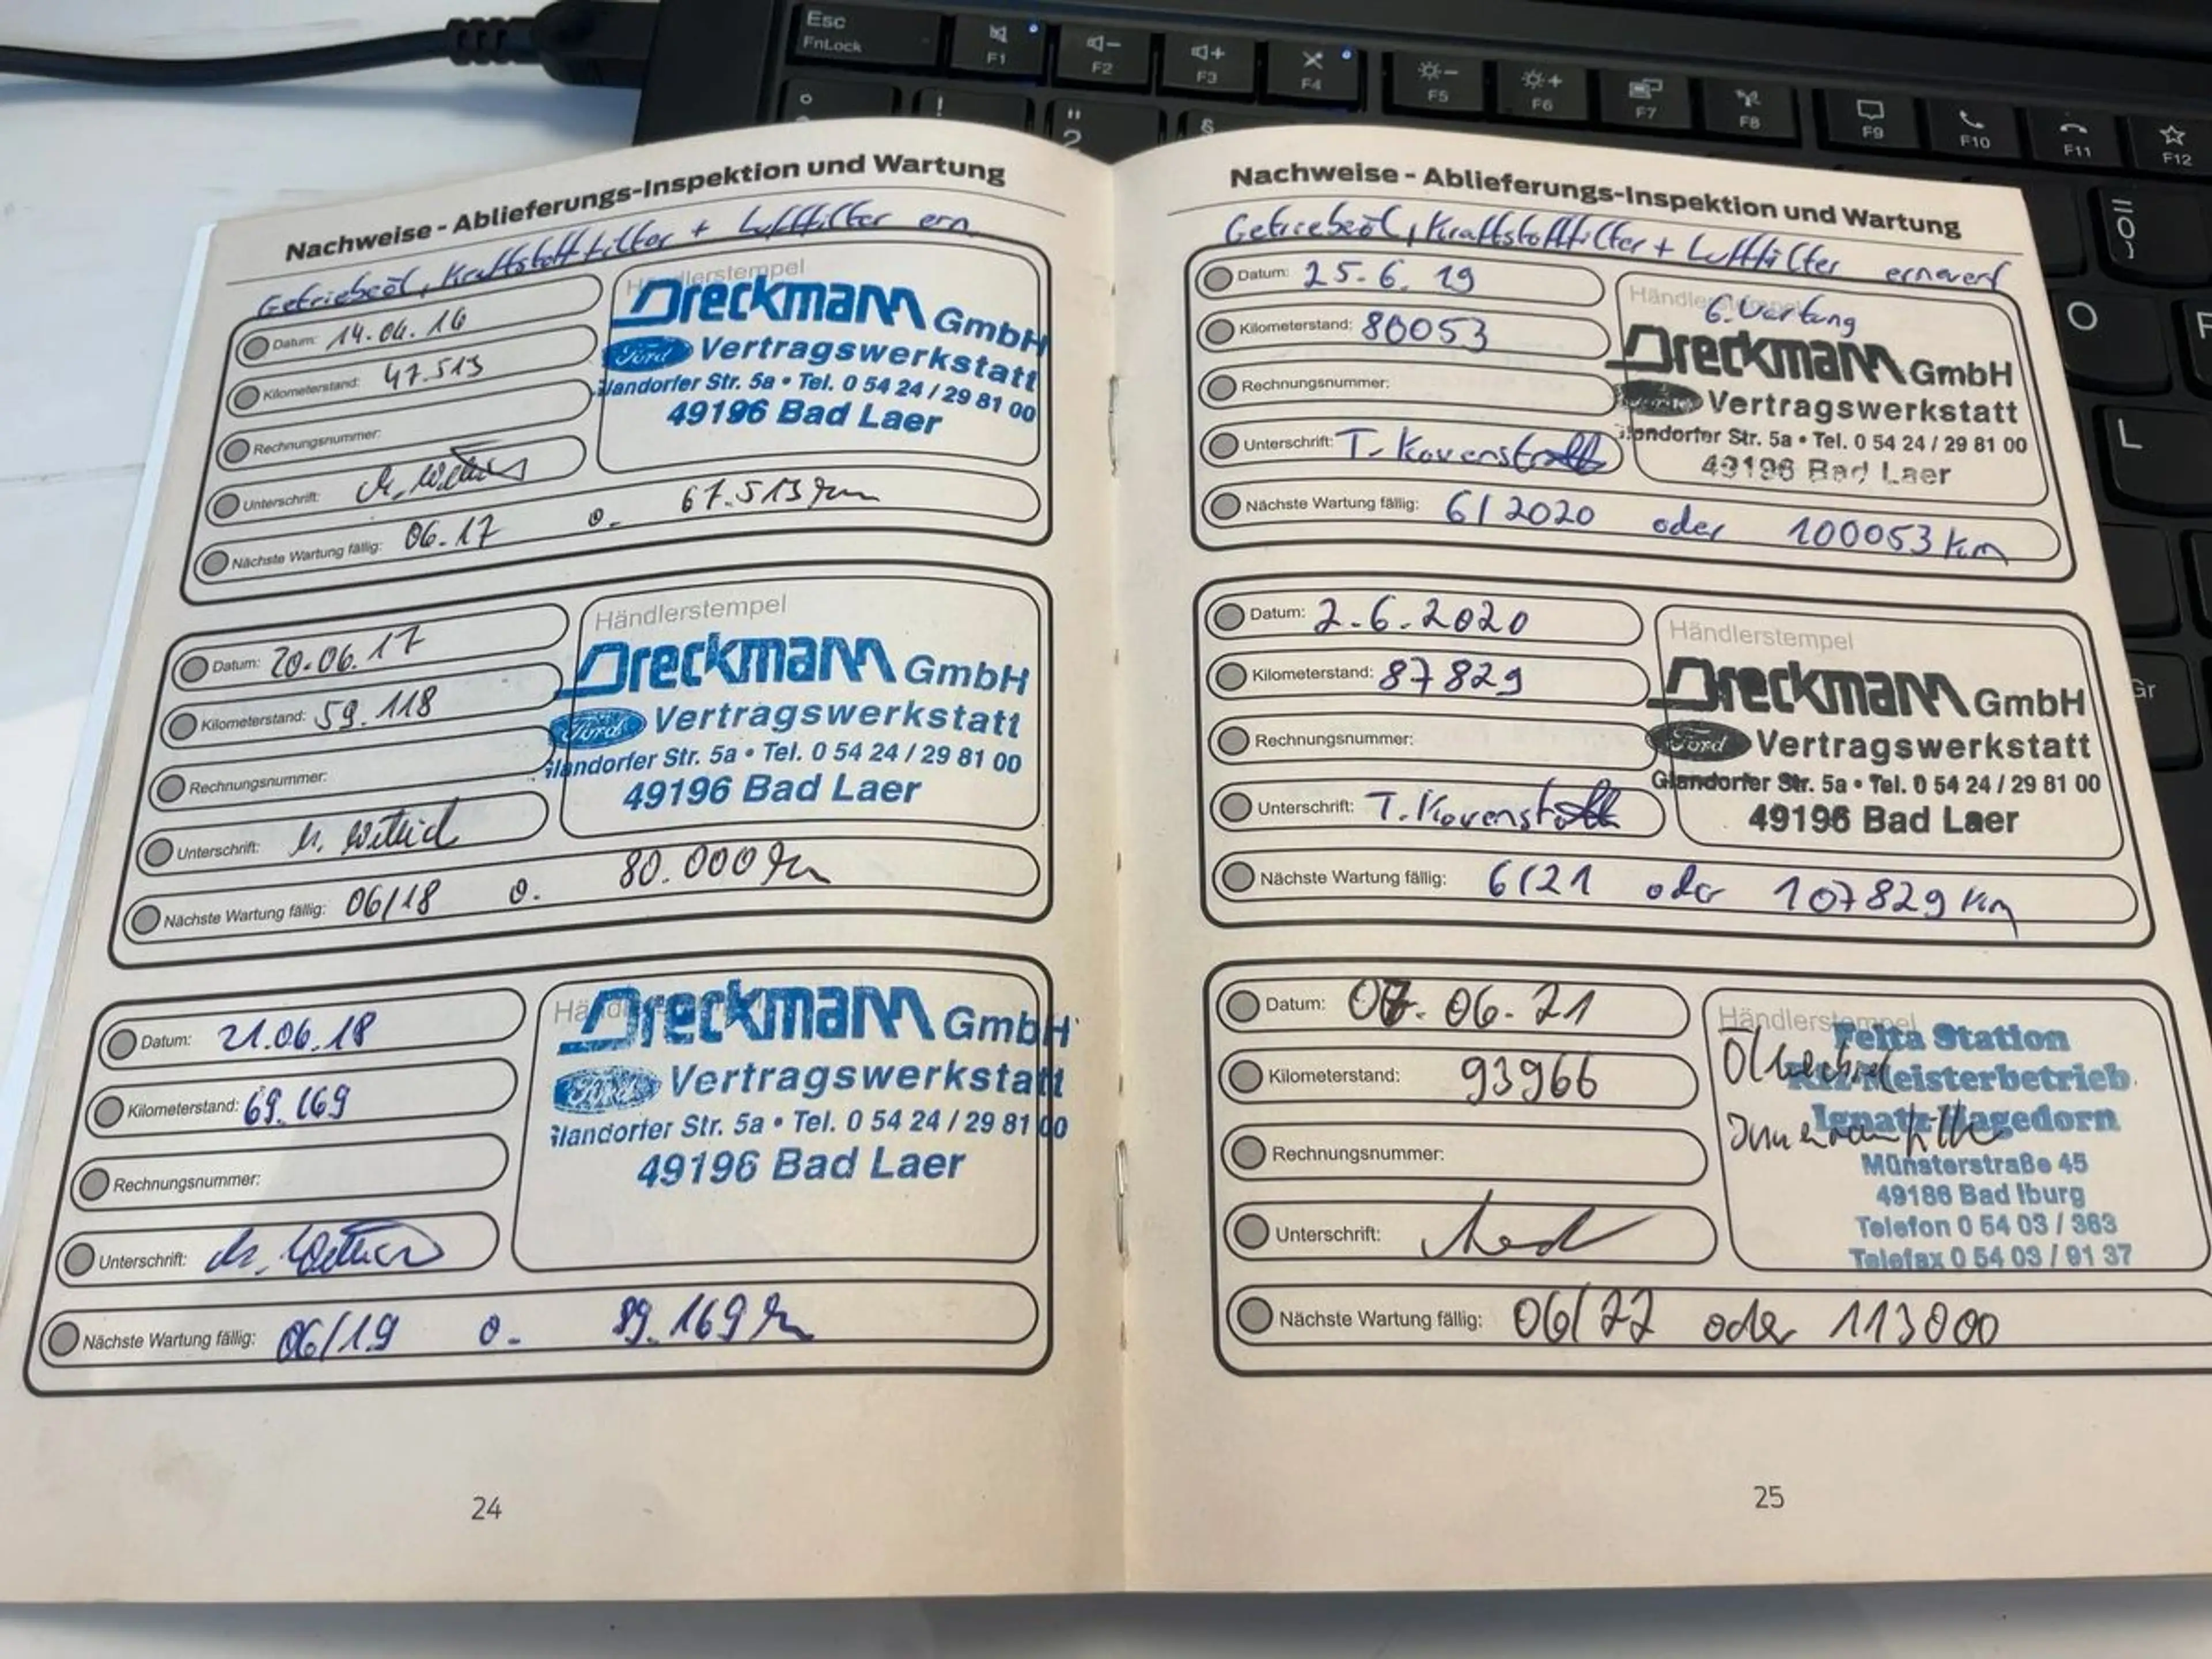 Esc
FnLock
F1
F2
F3
F4
F5
F6
F7
F8
F9
F10
F11
F12
!
"
2
§
O
L
Gr
Nachweise - Ablieferungs-Inspektion und Wartung
Getriebeöl, Kraftstofffilter + Luftfilter ern.
Datum: 14.06.16
Kilometerstand: 47.513
Rechnungsnummer:
Unterschrift:
Nächste Wartung fällig: 06.17 o. 67.513 km
Händlerstempel
Dreckmann GmbH
Ford Vertragswerkstatt
Glandorfer Str. 5a • Tel. 0 54 24 / 29 81 00
49196 Bad Laer
Datum: 20.06.17
Kilometerstand: 59.118
Rechnungsnummer:
Unterschrift:
Nächste Wartung fällig: 06/18 o. 80.000 km
Händlerstempel
Dreckmann GmbH
Ford Vertragswerkstatt
Glandorfer Str. 5a • Tel. 0 54 24 / 29 81 00
49196 Bad Laer
Datum: 21.06.18
Kilometerstand: 69.169
Rechnungsnummer:
Unterschrift:
Nächste Wartung fällig: 06/19 o. 89.169 km
Dreckmann GmbH
Ford Vertragswerkstatt
Glandorfer Str. 5a • Tel. 0 54 24 / 29 81 00
49196 Bad Laer
24
Nachweise - Ablieferungs-Inspektion und Wartung
Getriebeöl, Kraftstofffilter + Luftfilter erneuert
Datum: 25.6.19
Kilometerstand: 80053
Rechnungsnummer:
Unterschrift: T. Kovenstrott
Nächste Wartung fällig: 6/2020 oder 100053 km
Händlerstempel
6. Wartung
Dreckmann GmbH
Vertragswerkstatt
Glandorfer Str. 5a • Tel. 0 54 24 / 29 81 00
49196 Bad Laer
Datum: 2.6.2020
Kilometerstand: 87829
Rechnungsnummer:
Unterschrift: T. Kovenstrott
Nächste Wartung fällig: 6/21 oder 107829 km
Händlerstempel
Dreckmann GmbH
Ford Vertragswerkstatt
Glandorfer Str. 5a • Tel. 0 54 24 / 29 81 00
49196 Bad Laer
Datum: 07.06.21
Kilometerstand: 93966
Rechnungsnummer:
Unterschrift:
Nächste Wartung fällig: 06/22 oder 113000
Händlerstempel
Ölwechsel
Innenraumfilter
Felta Station
Kfz-Meisterbetrieb
Ignatz Hagedorn
Münsterstraße 45
49186 Bad Iburg
Telefon 0 54 03 / 363
Telefax 0 54 03 / 91 37
25